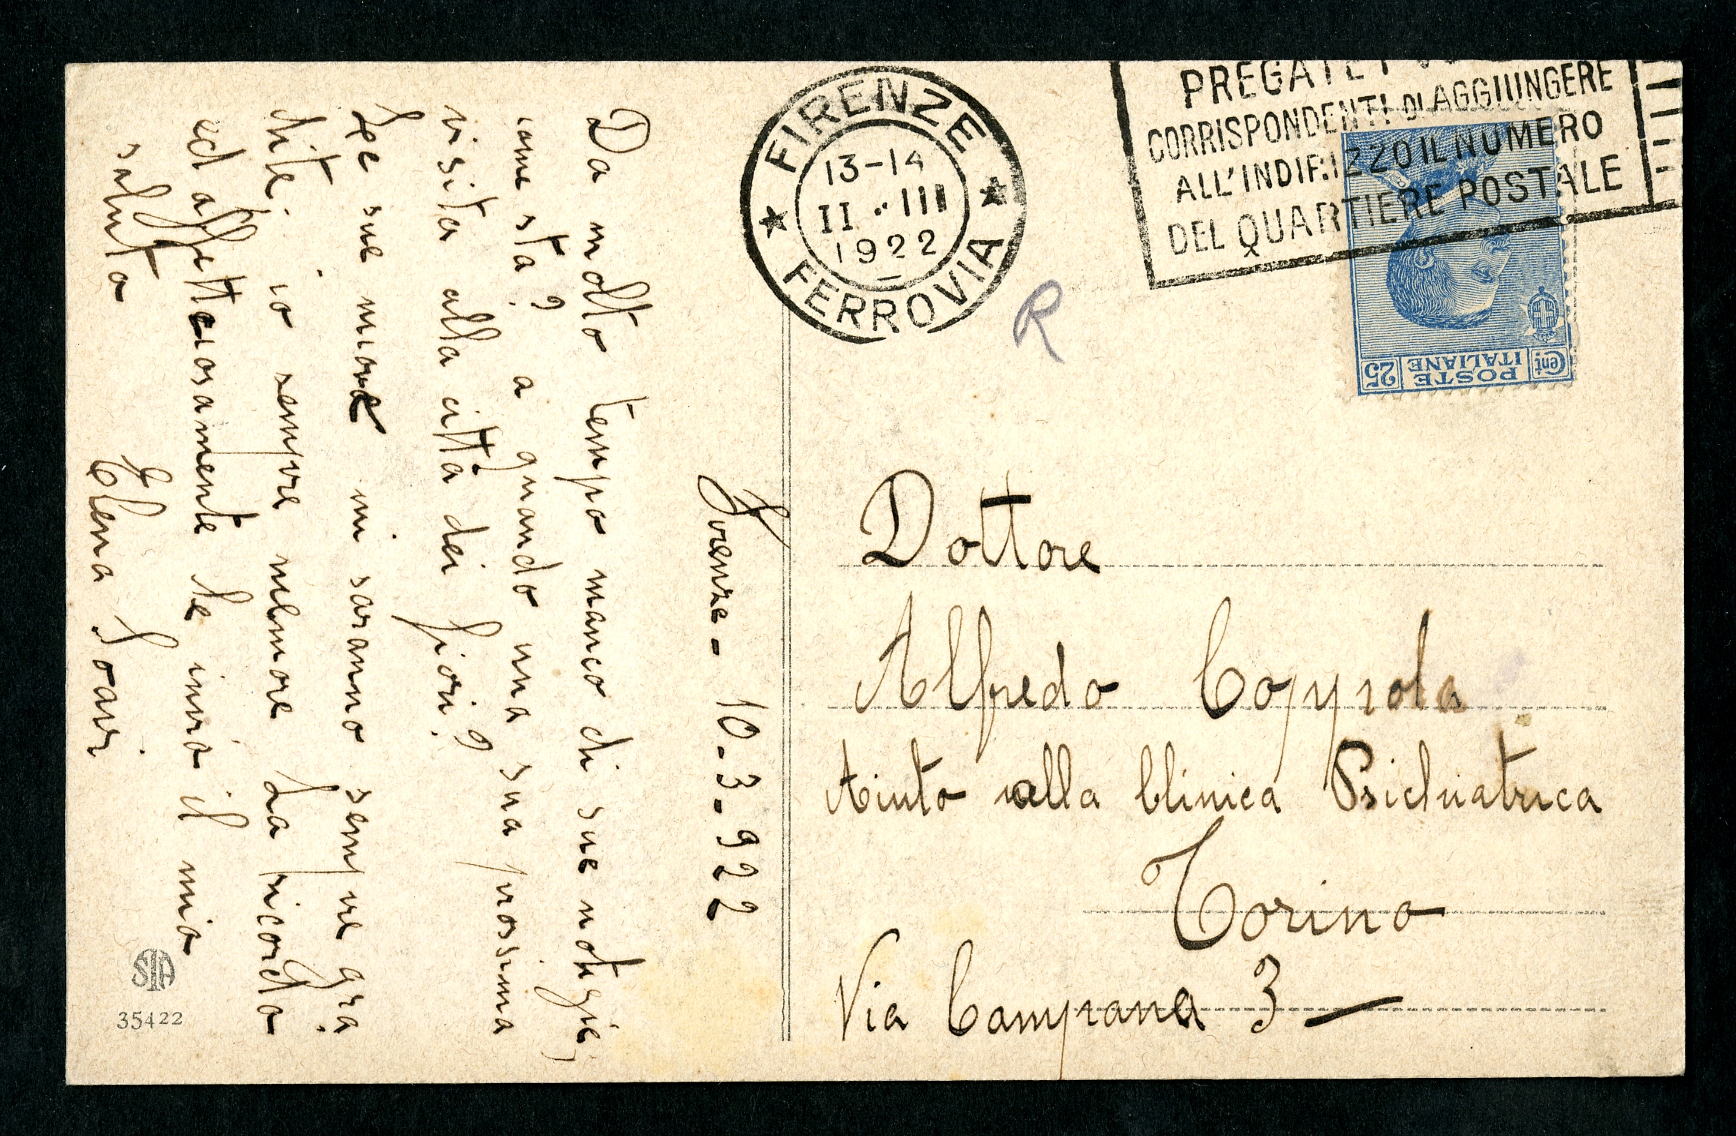 Firenze - 10-3-922
Da molto tempo manco di sue notizie,
come sta? a quando una sua prossima
visita alla città dei fiori?
Le sue nuove mi saranno sempre gra
dite. io sempre memore La ricordo
ed affettuosamente Le invio il mio
saluto
Elena Soavi
SIA
35422
FIRENZE
13-14
II · III
1922
FERROVIA
PREGATE I
CORRISPONDENTI DI AGGIUNGERE
ALL'INDIRIZZO IL NUMERO
DEL QUARTIERE POSTALE
R
Cent. 25
POSTE ITALIANE
Dottore
Alfredo Coppola
Aiuto alla Clinica Psichiatrica
Torino
Via Campana 3 —